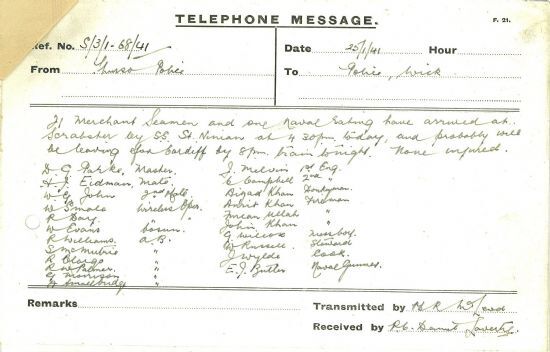 TELEPHONE MESSAGE.
F. 21.
Ref. No. S/3/1-68/41
Date 25/1/41 Hour
From Thurso Police
To Police, Wick
21 Merchant Seamen and one Naval Rating have arrived at
Scrabster by SS. St. Ninian at 4.30pm today, and probably will
be leaving for Cardiff by 8pm train tonight. None injured.
D G Parke, Master.
H J Eidman, Mate.
W G John 2nd Mate
W Smale Wireless Oper.
R Day "
W Evans bosun.
R Williams. A.B.
S McMutrie "
R "
R W Palmer. "
G Morrison "
W Smallbridge "
J. Melvin 1st Eng.
E Campbell 2nd "
Khan Donkeyman.
Amrit Khan Fireman
Ullah "
John Khan "
G Wilcox messboy.
W Russell. Steward
J Wylde Cook.
E.J. Butler Naval Gunner.
Remarks
Transmitted by H R
Received by P.C.